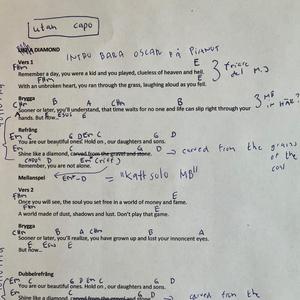 utan capo
DIAMOND
INTRO BARA OSCAR PÅ PIANOT
Vers 1
F#m E
Remember a day, you were a kid and you played, clueless of heaven and hell.
F#m E
With an unbroken heart, you ran through the grass, laughing aloud as you fell.
Brygga
C#m B A C#m B
Sooner or later, you'll understand, that time waits for no one and life can slip right through your
hands. But now.. Esus E
Refräng
Em C G D Em C G D
You are my beautiful ones. Hold on, our daughters and sons.
Em C G D
Shine like a diamond, carved from gravel and stone. → carved from the
D Em (riff)
Remember, you are not alone.
Mellanspel Em - D = "Kattsolo MB"
Vers 2
F#m E
Once you will see, the soul you set free in a world of money and fame.
F#m E
A world made of dusk, shadows and lust. Don't play that game.
Brygga
C#m B A C#m B A
Sooner or later, you'll realize, you have grown up and lost your innoncent eyes.
E Esus E
But now...
Dubbelrefräng
Em C G D Em C G D
You are my beautiful ones. Hold on, our daughters and sons.
Em C G D
Shine like a diamond, carved from the